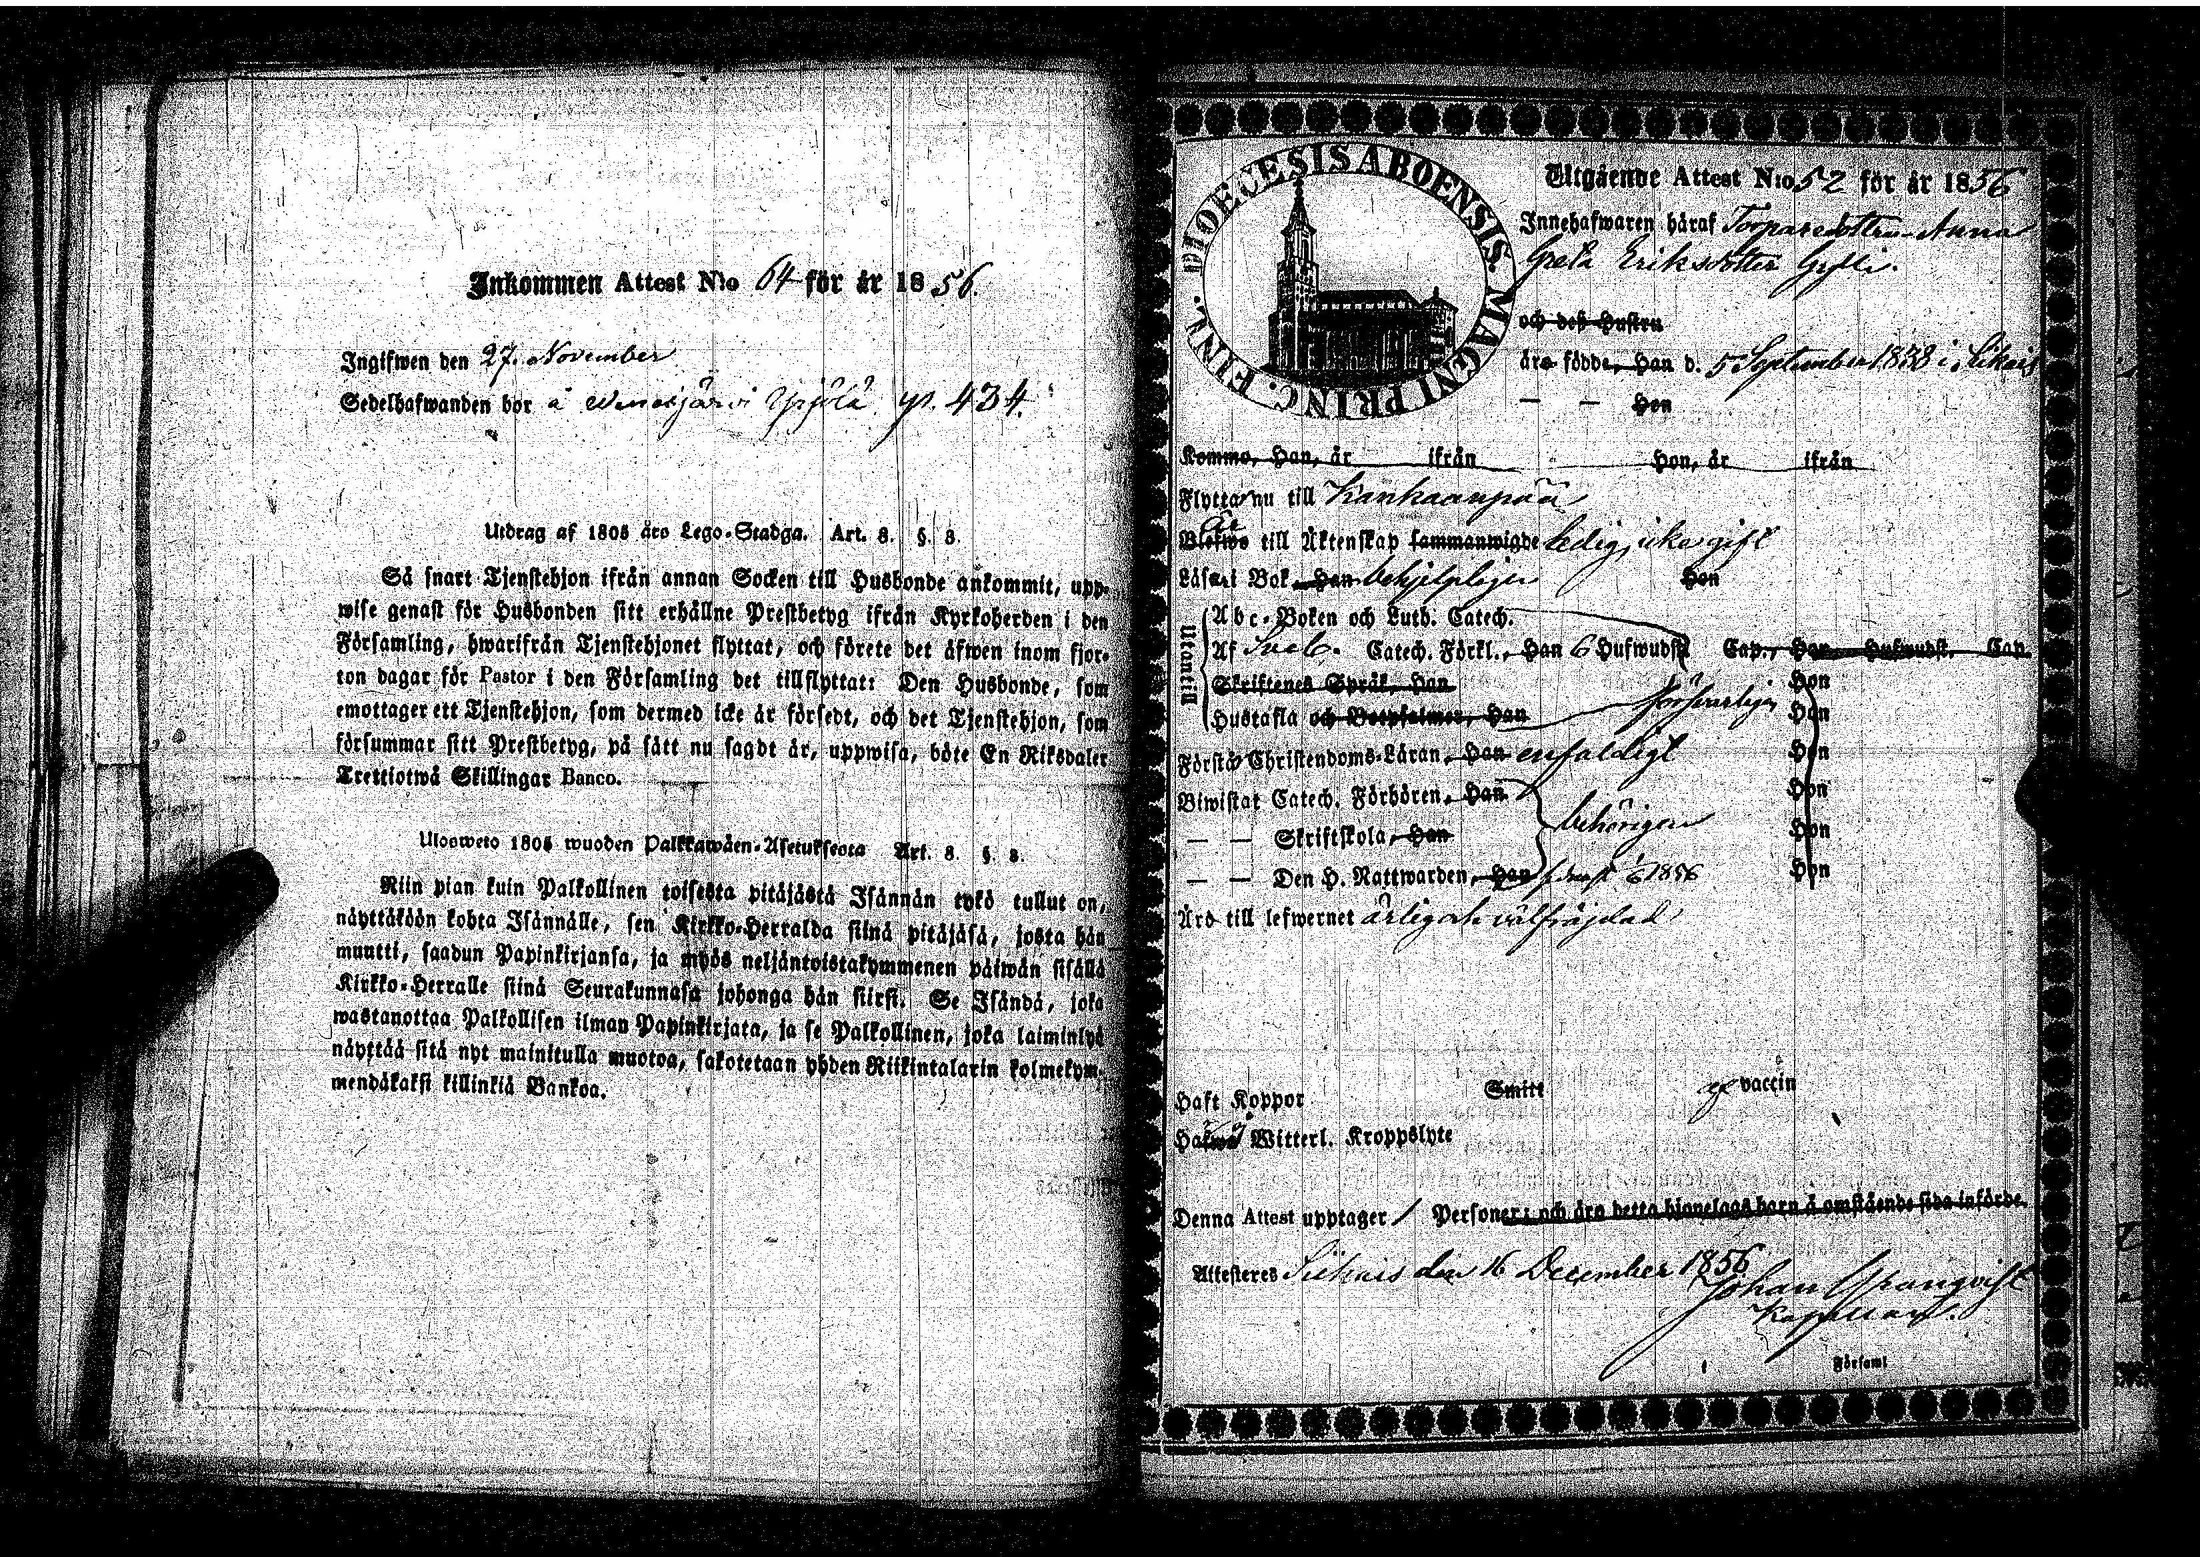 Inkommen Attest N:o 64 för år 1856.
Ingifwen den 27. November
Sedelhafwanden bor å p. 434.
Utdrag af 1805 års Lego-Stadga. Art. 8. §. 8.
Så snart Tjenstehjon ifrån annan Socken till Husbonde ankommit, upp-
wise genast för Husbonden sitt erhållne Prestbetyg ifrån Kyrkoherden i den
Församling, hwarifrån Tjenstehjonet flyttat, och förete det äfwen inom fjor-
ton dagar för Pastor i den Församling det tillflyttat: Den Husbonde, som
emottager ett Tjenstehjon, som dermed icke är försedt, och det Tjenstehjon, som
försummar sitt Prestbetyg, på sätt nu sagdt är, uppwisa, böte En Riksdaler
Trettiotwå Skillingar Banco.
Ulosweto 1805 wuoden Palkkawäen-Asetuksesta Art. 8. §. 8.
Niin pian kuin Palkollinen toisesta pitäjästä Isännän tykö tullut on,
näyttäköön kohta Isännälle, sen Kirkko-Herralda siinä pitäjäsä, josta hän
muutti, saadun Papinkirjansa, ja myös neljäntoistakymmenen päiwän sisällä
Kirkko-Herralle siinä Seurakunnasa johonga hän siirsi. Se Isändä, joka
wastanottaa Palkollisen ilman Papinkirjata, ja se Palkollinen, joka laiminlyö
näyttää sitä nyt mainitulla muotoa, sakotetaan yhden Riikintalarin kolmekym-
mendäkaksi killinkiä Bankoa.
DIOECESIS ABOENSIS. MAGNI PRINC. FINN.
Utgående Attest N:o 52 för år 1856
Innehafwaren häraf Torparedottren Anna
Greta Eriksdotter Gylli.
och deß Hustru
äro födde, Han d. 5 September 1838 i Siikais
— — Hon
Kommo, Han, år ifrån Hon, år ifrån
Flytta nu till Kankaanpää
är
Blefwo till Äktenskap sammanwigde ledig, icke gift
Läsa i Bok, Han behjelpligen Hon
Utantill
Abc-Boken och Luth. Catech.
Af Sveb. Catech. Förkl., Han 6 Hufwudst. Cap., Hon Hufwudst. Cap.
Skriftenes Språk, Han Hon
Hustafla och Botpsalmer, Han försvarligen Hon
Förstå Christendoms-Läran, Han enfaldigt Hon
Biwistat Catech. Förhören, Han Hon
— — Skriftskola, Han behörigen Hon
— — Den H. Nattwarden, Han 1856 Hon
Äro till lefwernet ärlig och välfräjdad
Haft Koppor Smitt ej vaccin
Hafwa Witterl. Kroppslyte
Denna Attest upptager 1 Personer; och äro detta hjonelags barn å omstående sida införde.
Attesteres Siikais den 16 December 1856
Johan
Kapellan.
Församl